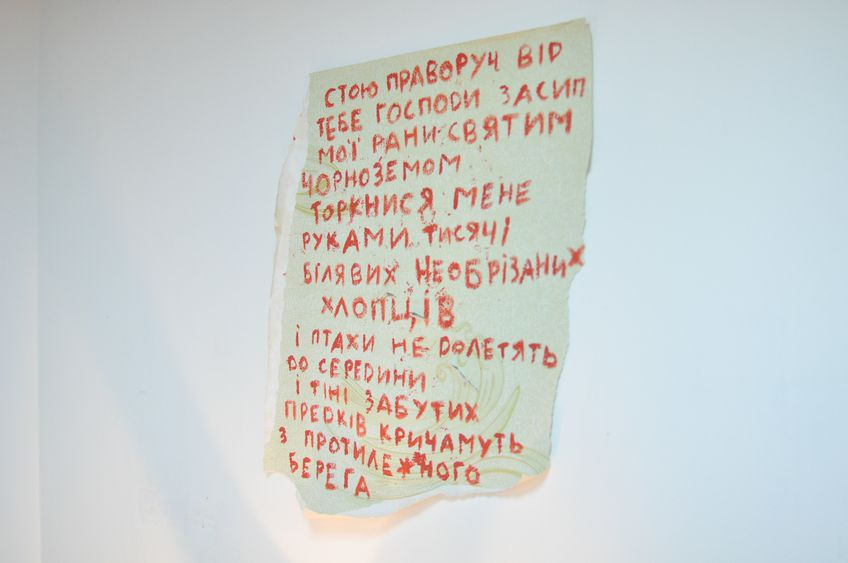 СТОЮ ПРАВОРУЧ ВІД
ТЕБЕ ГОСПОДИ ЗАСИП
МОЇ РАНИ СВЯТИМ
ЧОРНОЗЕМОМ
ТОРКНИСЯ МЕНЕ
РУКАМИ ТИСЯЧІ
БІЛЯВИХ НЕОБРІЗАНИХ
ХЛОПЦІВ
І ПТАХИ НЕ ДОЛЕТЯТЬ
ДО СЕРЕДИНИ
І ТІНІ ЗАБУТИХ
ПРЕДКІВ КРИЧАМУТЬ
З ПРОТИЛЕЖНОГО
БЕРЕГА